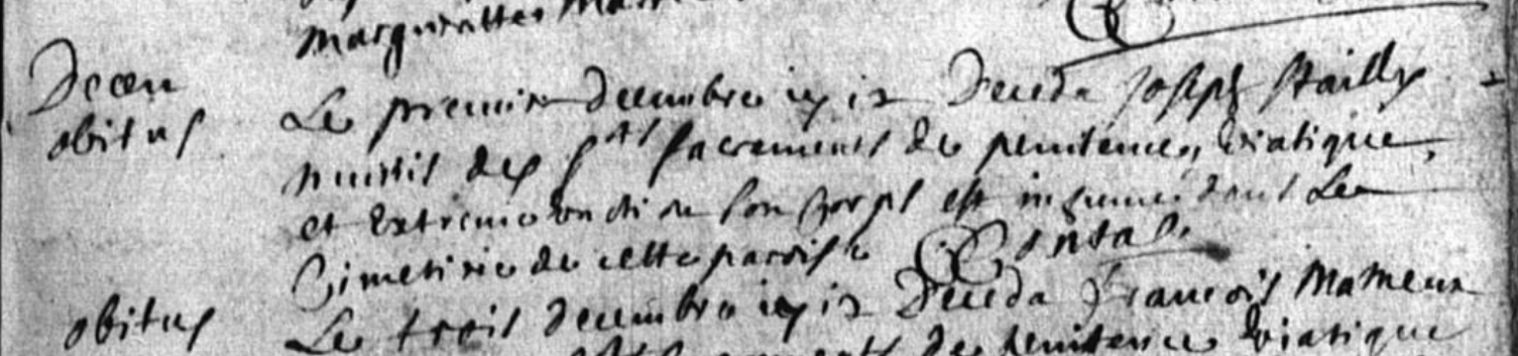 margueritte
Decem
obitus
Le premier decembre deceda Joseph Stailly
munit des sts sacrements de penitence, viatique,
et extreme onction son corps est inhumé dans Le
Cimetiere de cette paroisse
obitus
Le trois decembre deceda François
de penitence viatique